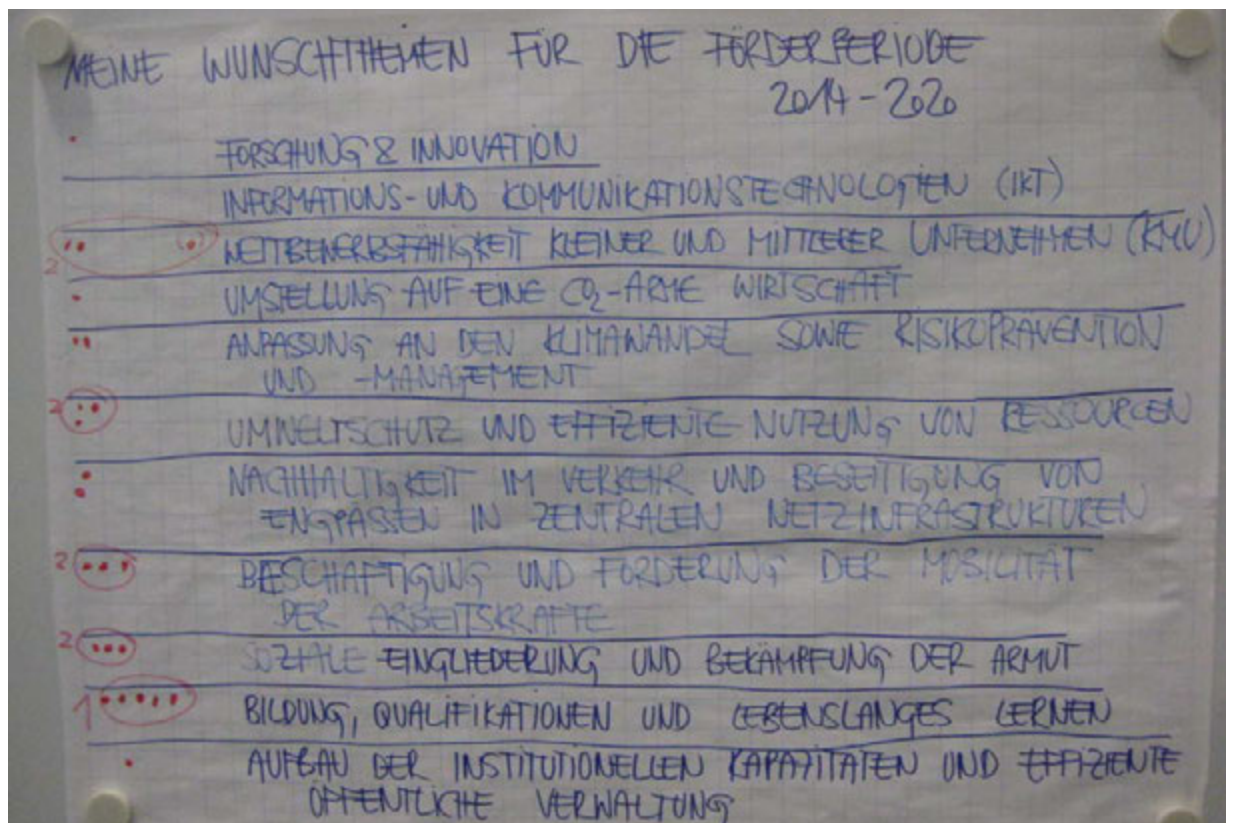 MEINE WUNSCHTHEMEN FÜR DIE FÖRDERPERIODE
2014-2020
FORSCHUNG & INNOVATION
INFORMATIONS- UND KOMMUNIKATIONSTECHNOLOGIEN (IKT)
2 WETTBEWERBSFÄHIGKEIT KLEINER UND MITTLERER UNTERNEHMEN (KMU)
UMSTELLUNG AUF EINE CO₂-ARME WIRTSCHAFT
ANPASSUNG AN DEN KLIMAWANDEL SOWIE RISIKOPRÄVENTION
UND -MANAGEMENT
2 UMWELTSCHUTZ UND EFFIZIENTE NUTZUNG VON RESSOURCEN
NACHHALTIGKEIT IM VERKEHR UND BESEITIGUNG VON
ENGPÄSSEN IN ZENTRALEN NETZINFRASTRUKTUREN
2 BESCHÄFTIGUNG UND FÖRDERUNG DER MOBILITÄT
DER ARBEITSKRÄFTE
2 SOZIALE EINGLIEDERUNG UND BEKÄMPFUNG DER ARMUT
1 BILDUNG, QUALIFIKATIONEN UND LEBENSLANGES LERNEN
AUFBAU DER INSTITUTIONELLEN KAPAZITÄTEN UND EFFIZIENTE
ÖFFENTLICHE VERWALTUNG